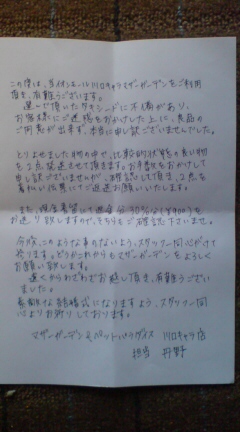 この度は、当イオンモール川口キャラマザーガーデンをご利用
頂き、有難うございます。
選んで頂いたタキシードに不備があり、
お客様にご迷惑をおかけした上に、良品の
ご用意が出来ず、本当に申し訳ございませんでした。
とりよせました物の中で、比較的状態の良い物
を2点発送させて頂きます。お手数をおかけして
申し訳ございませんが、確認して頂き、1点を
着払い伝票にてご返送お願いいたします。
また、現金書留にて返金分30%分(¥900)を
お送り致しますので、そちらもご確認下さいませ。
今後、このような事のないよう、スタッフ一同心がけて
参ります。どうかこれからもマザーガーデンをよろしく
お願い致します。
遠くからわざわざお越し頂き、有難うござい
ました。
素敵な結婚式になりますよう、スタッフ一同
心よりお祈りしております。
マザーガーデン&ペットパラダイス 川口キャラ店
担当 丹野